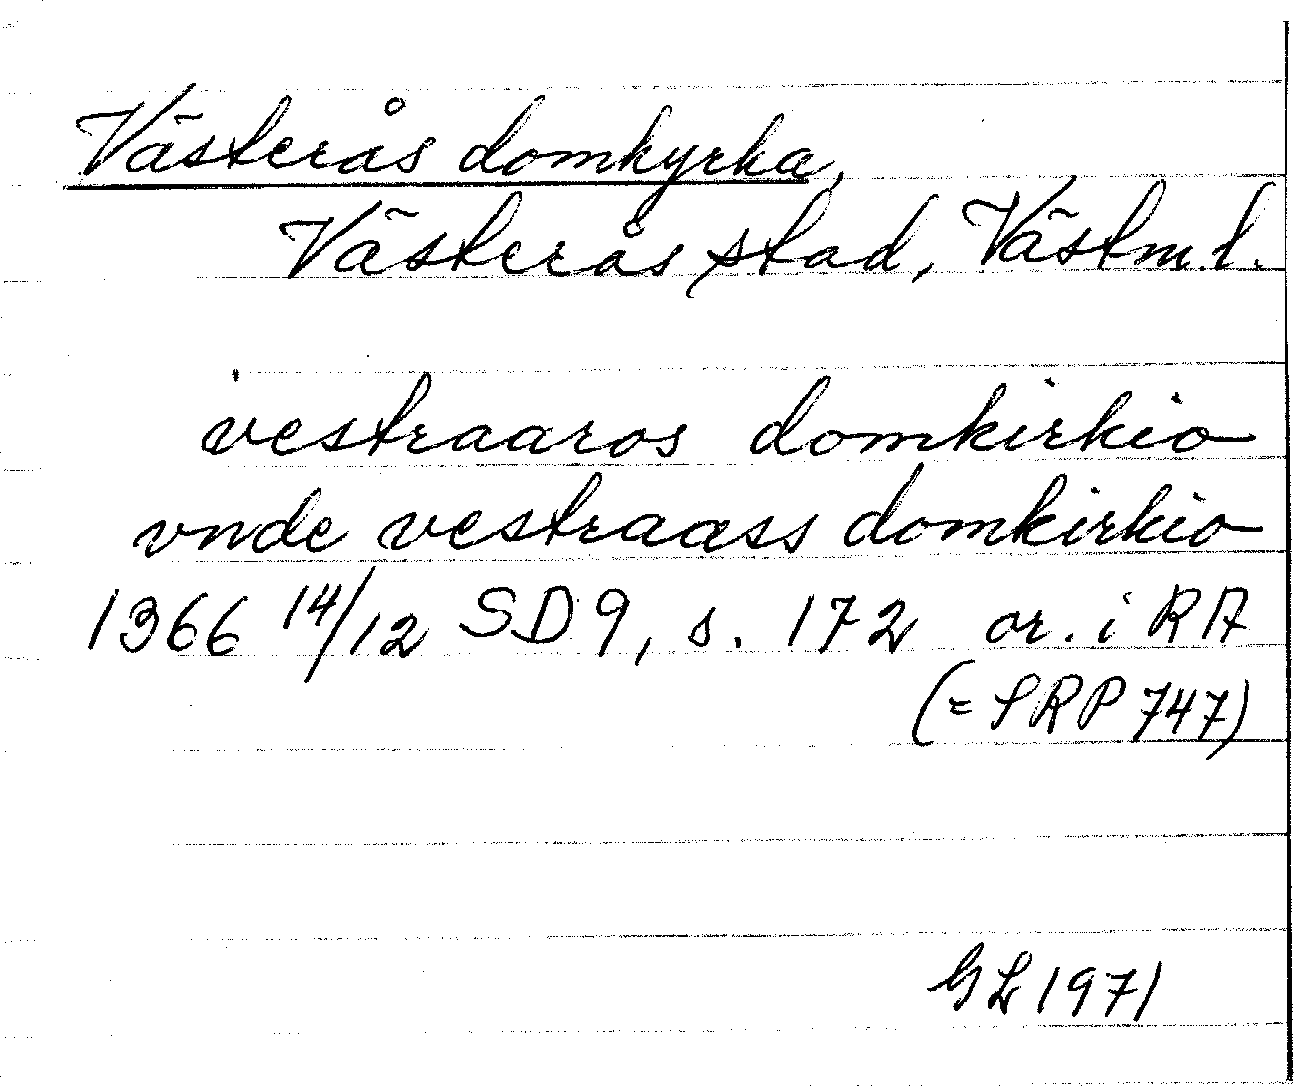 Västerås domkyrka,
Västerås stad, Västm.l.
vestraaros domkirkio
vnde vestraass domkirkio
1366 14/12 SD 9, s. 172 or. i RA
(= SRP 747)
GL 1971